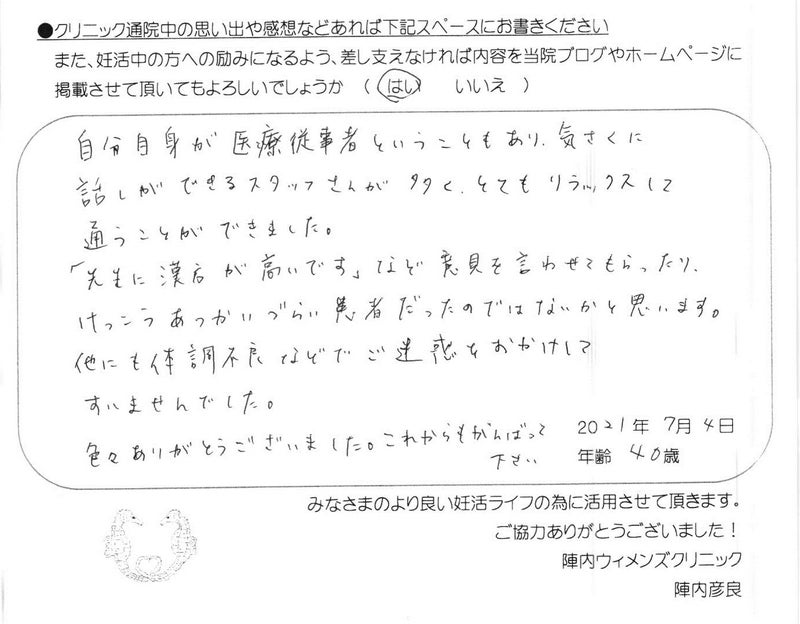 ●クリニック通院中の思い出や感想などあれば下記スペースにお書きください
また、妊活中の方への励みになるよう、差し支えなければ内容を当院ブログやホームページに
掲載させて頂いてもよろしいでしょうか ( はい いいえ )
自分自身が医療従事者ということもあり、気さくに
話しができるスタッフさんが多く、とてもリラックスして
通うことができました。
「先生に漢方が高いです」など意見を言わせてもらったり、
けっこうあつかいづらい患者だったのではないかと思います。
他にも体調不良などでご迷惑をおかけして
すいませんでした。
色々ありがとうございました。これからもがんばって
下さい
2021年 7月 4日
年齢 40歳
みなさまのより良い妊活ライフの為に活用させて頂きます。
ご協力ありがとうございました!
陣内ウィメンズクリニック
陣内彦良